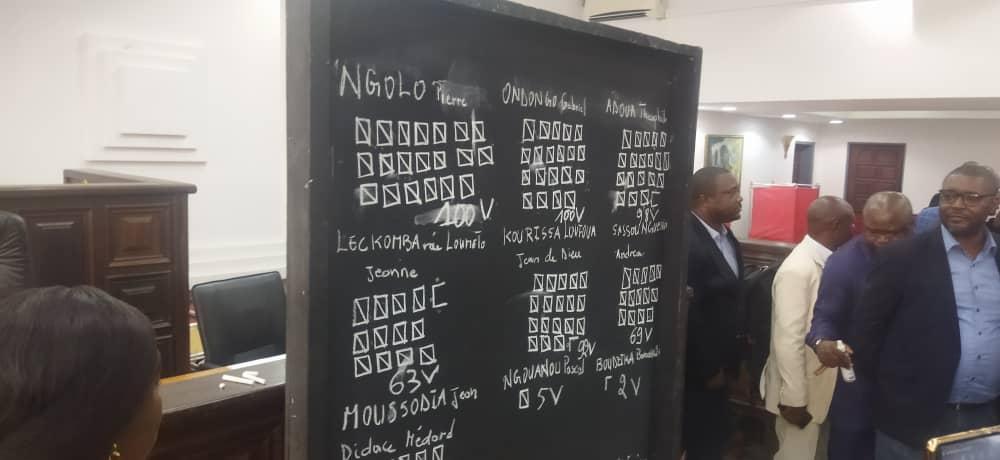 NGOLO Pierre
100 V
ONDONGO Gabriel
100V
ADOUA Théophile
98V
LECKOMBA née Loumeto
Jeanne
63V
KOURISSA LOUFOUA
Jean de Dieu
SASSOU NGUESSO
Andrea
69V
MOUSSODIA Jean
Didace Médard
NGOUANOU Pascal
5V
BOUDZIKA
2V